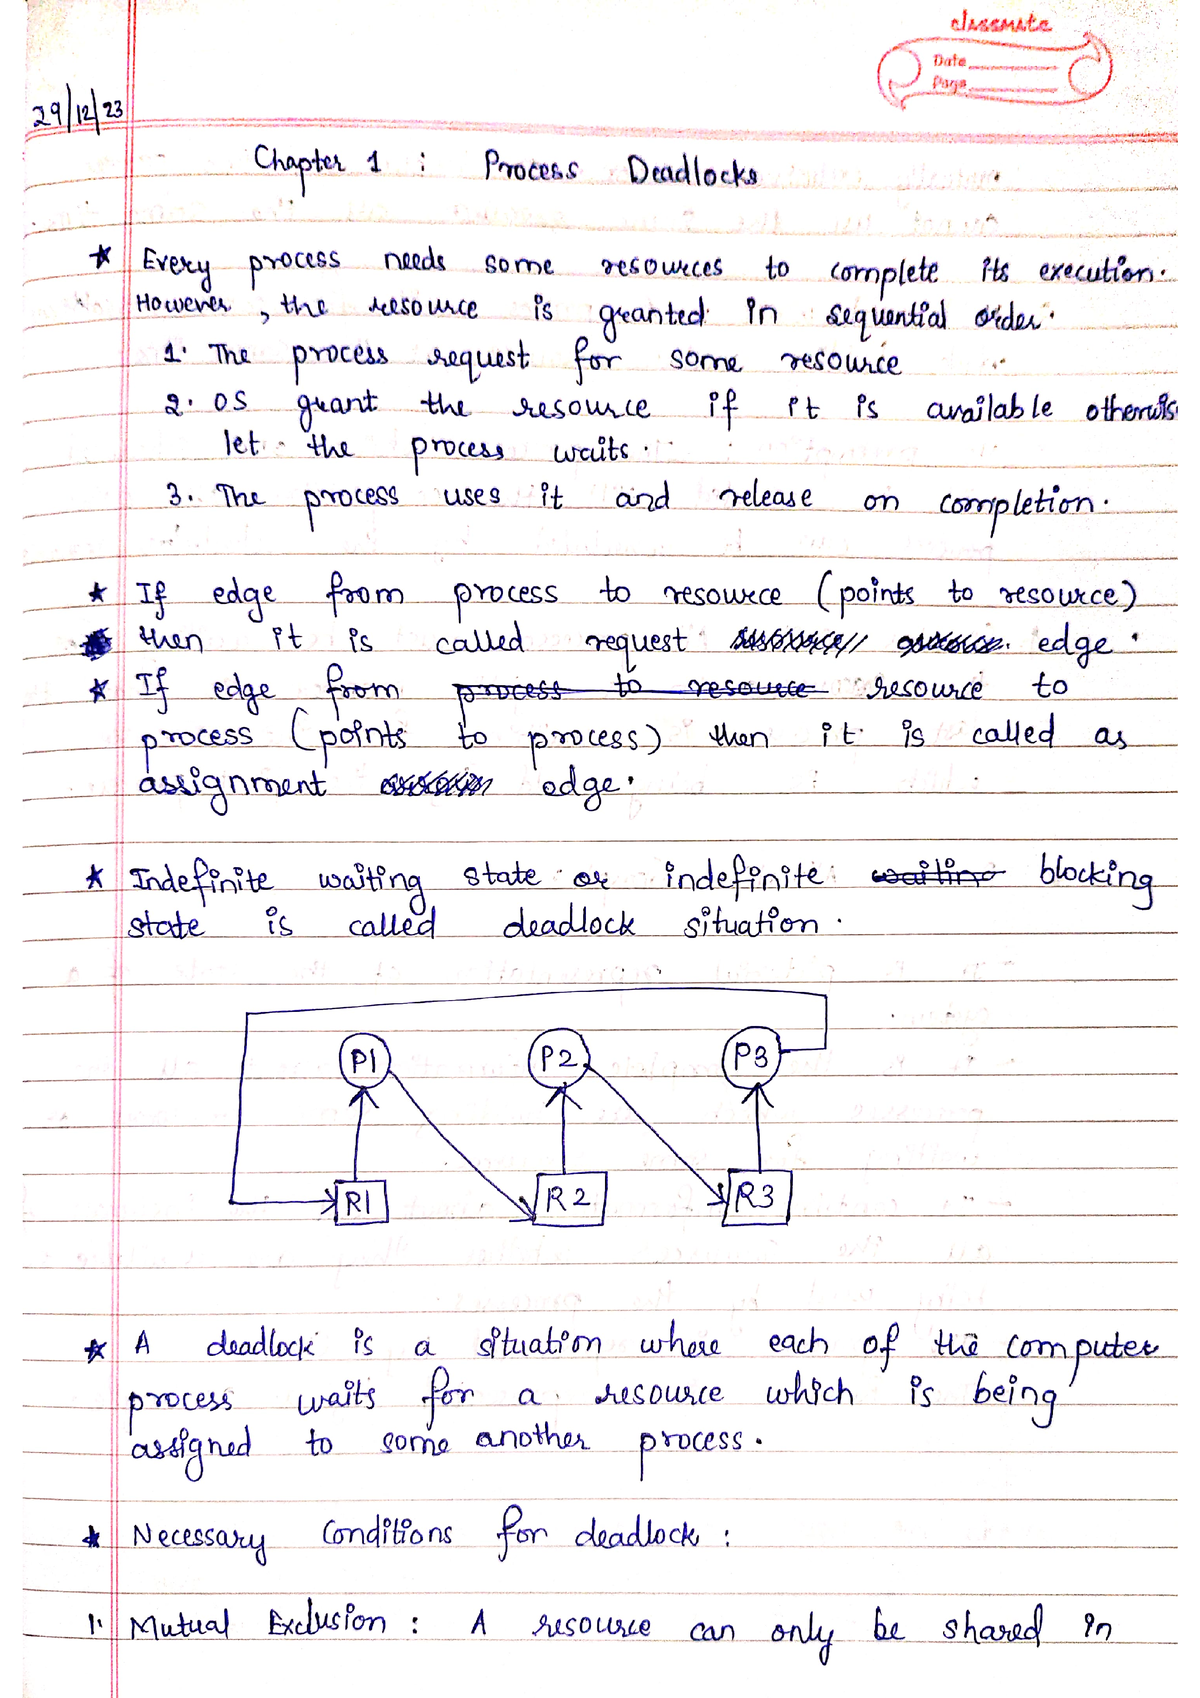 classmate
Date
Page
29/12/23
Chapter 1 : Process Deadlocks
* Every process needs some resources to complete its execution.
However, the resource is granted in sequential order.
1. The process request for some resource
2. OS grant the resource if it is available otherwis
let the process waits.
3. The process uses it and release on completion.
* If edge from process to resource (points to resource)
then it is called request edge.
* If edge from process to resource resource to
process (points to process) then it is called as
assignment edge.
* Indefinite waiting state or indefinite waiting blocking
state is called deadlock situation.
P1 P2 P3
R1 R2 R3
* A deadlock is a situation where each of the computer
process waits for a resource which is being
assigned to some another process.
* Necessary Conditions for deadlock :
1. Mutual Exclusion : A resource can only be shared in